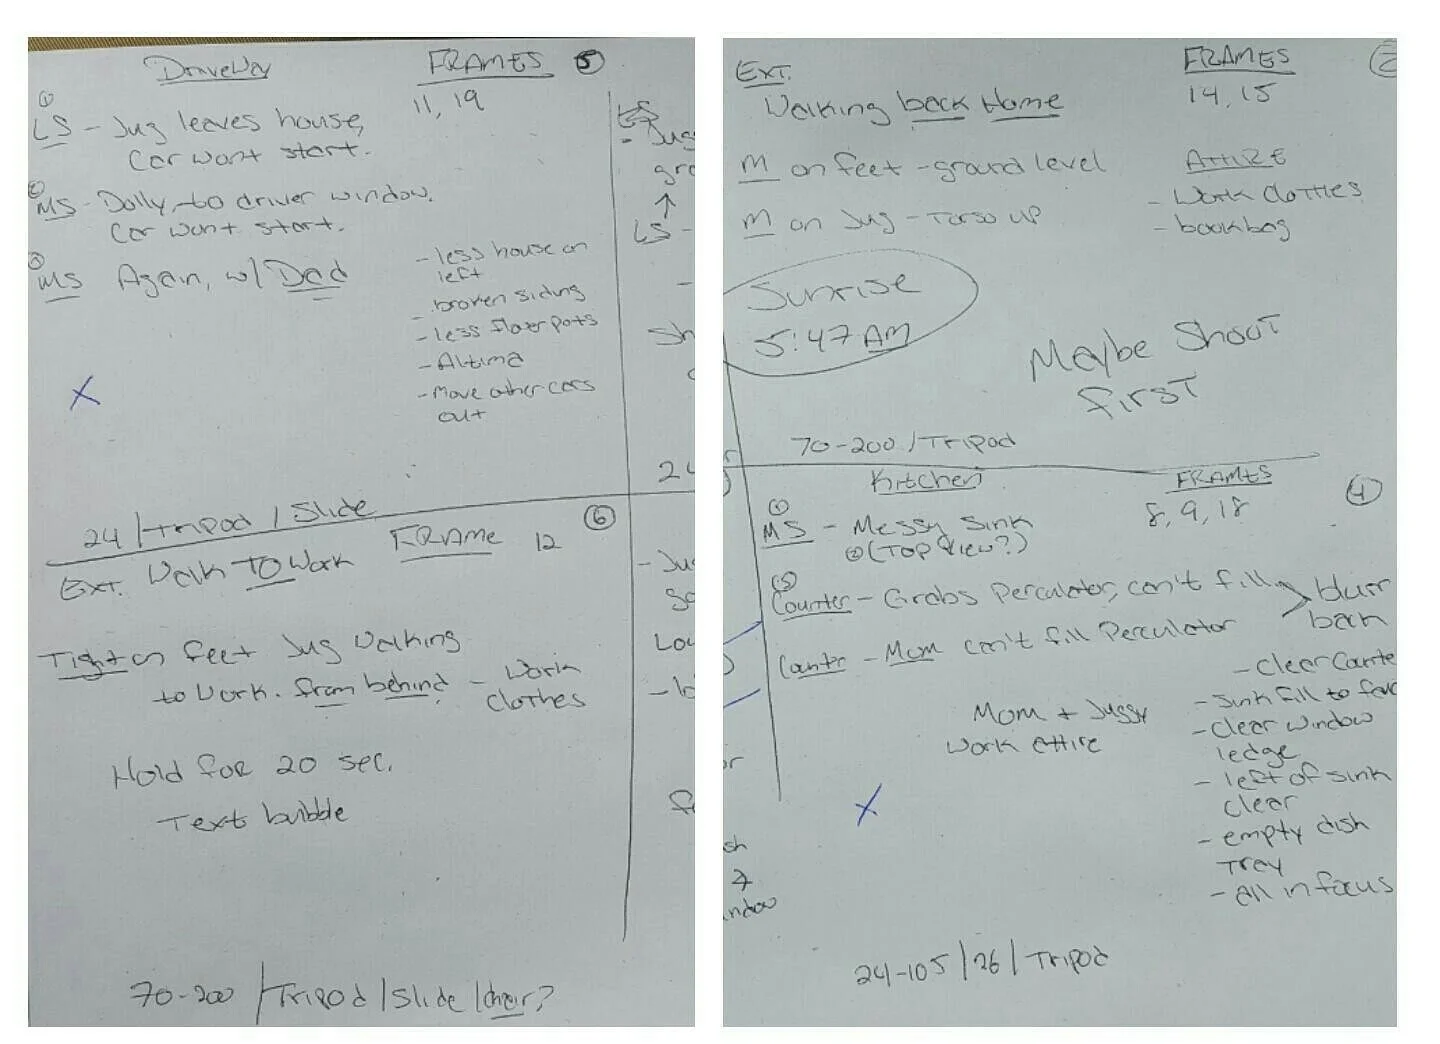 Driveway
FRAMES
5
11, 19
①
LS - Jug leaves house,
Car wont start.
②
MS - Dolly to driver window.
Car wont start.
③
MS Again, w/ Dad
- less house on
left
- broken siding
- less flower pots
- Altima
- Move other cars
out
X
24 / Tripod / Slide
LS
- Jug
gro
↑
LS -
-
Sh
24
6
Ext. Walk TO Work
FRAME 12
Tight on feet Jug walking
to work. from behind - work
clothes
Hold for 20 sec.
Text bubble
70-200 / Tripod / Slide / chair?
- Jug
So
Lou
- lo
EXT.
FRAMES
2
Walking back Home
14, 15
M on feet - ground level
ATTIRE
- Work Clothes
M on Jug - Torso up
- bookbag
Sunrise
5:47 AM
Maybe Shoot
first
70-200 / Tripod
Kitchen
FRAMES
4
8, 9, 18
①
MS - Messy Sink
② (TOP View?)
③
Counter - Grabs Perculator, can't fill > blurr
back
Counter - Mom can't fill Perculator
- clear Counte
Mom + Juggy
work attire
- Sink fill to fau
- clear window
ledge
- left of sink
clear
- empty dish
Trey
- All in focus
X
sh
ndow
24-105 / 26 / Tripod